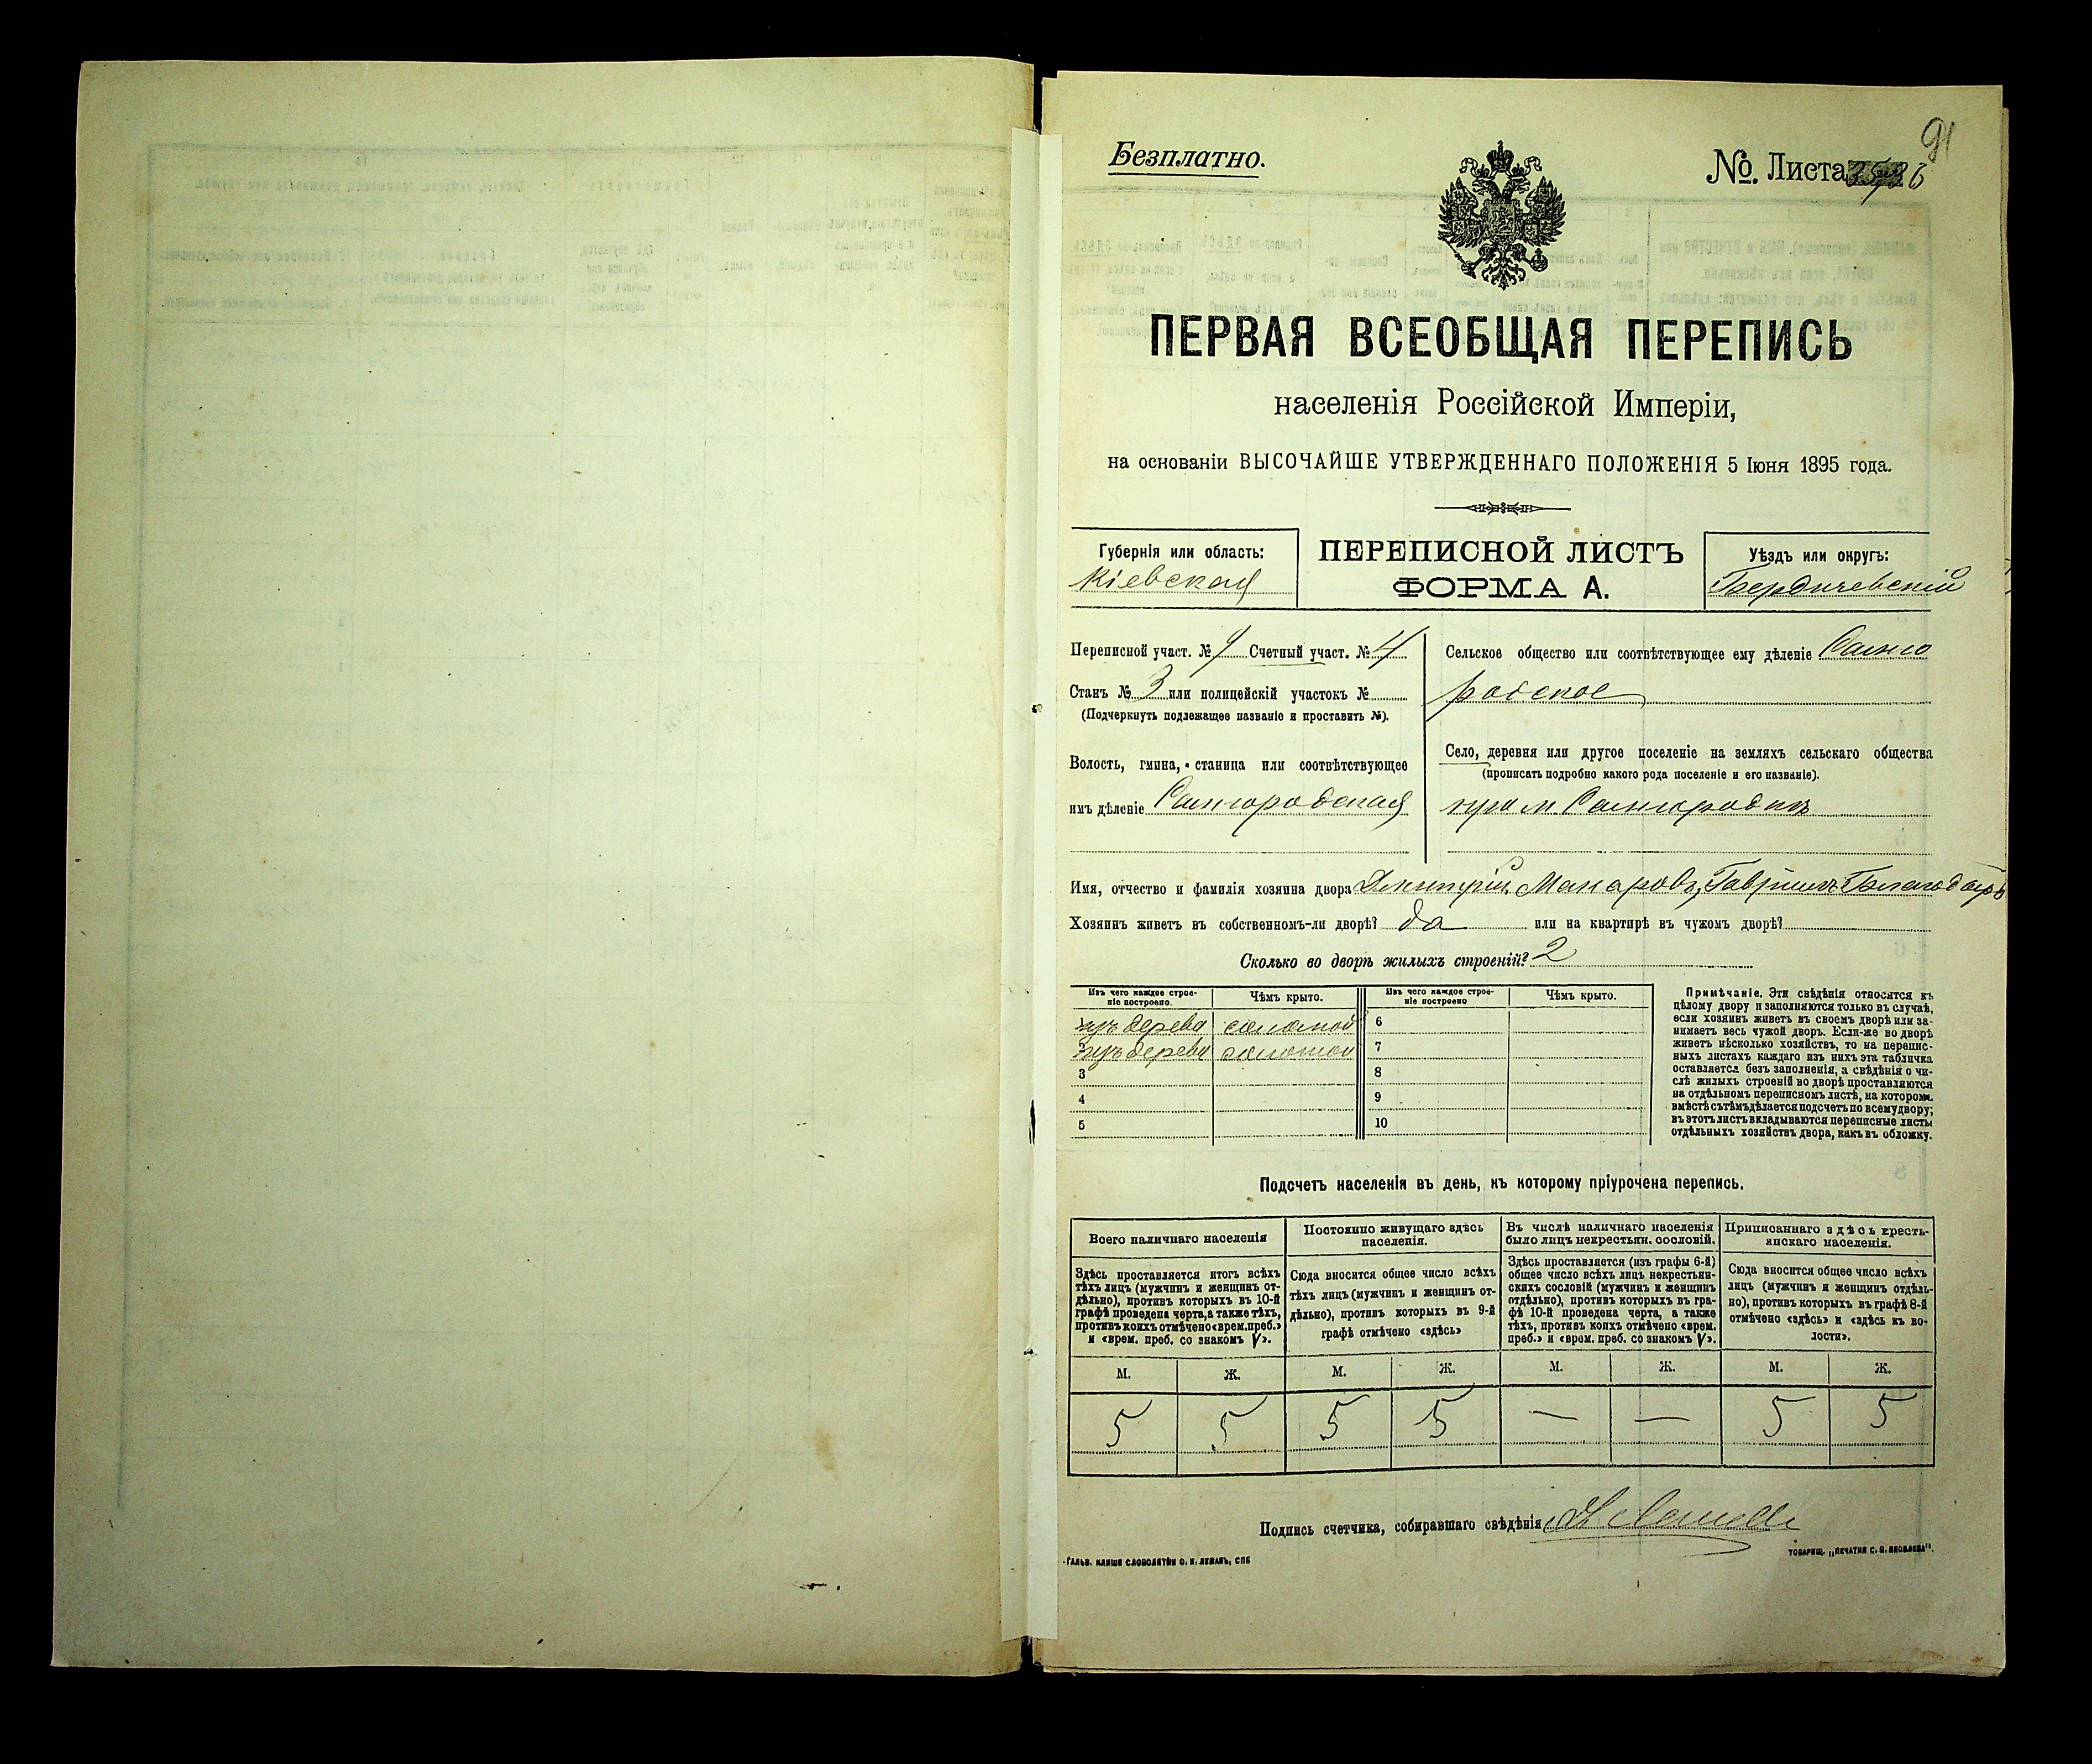 91
Безплатно.
№. Листа
ПЕРВАЯ ВСЕОБЩАЯ ПЕРЕПИСЬ
населенія Россійской Имперіи,
на основаніи ВЫСОЧАЙШЕ УТВЕРЖДЕННАГО ПОЛОЖЕНІЯ 5 Іюня 1895 года.
Губернія или область:
Кіевская
ПЕРЕПИСНОЙ ЛИСТЪ
ФОРМА А.
Уѣздъ или округъ:
Бердичевскій
Переписной участ. № Счетный участ. № 4
Станъ № 3 или полицейскій участокъ №
(Подчеркнуть подлежащее названіе и проставить №).
Волость, гмина, станица или соотвѣтствующее
имъ дѣленіе Самгородская
Сельское общество или соотвѣтствующее ему дѣленіе Самго
родское
Село, деревня или другое поселеніе на земляхъ сельскаго общества
(прописать подробно какого рода поселеніе и его названіе).
м. Самгородкъ
Имя, отчество и фамилія хозяина двора Дмитрій Макаровъ Гавріилъ
Хозяинъ живетъ въ собственномъ-ли дворѣ? да или на квартирѣ въ чужомъ дворѣ?
Сколько во дворѣ жилыхъ строеній? 2
Изъ чего каждое строе-
ніе построено.
Чѣмъ крыто.
Изъ чего каждое строе-
ніе построено
Чѣмъ крыто.
изъ дерева соломой 6
изъ дерева соломой 7
3 8
4 9
5 10
Примѣчаніе. Эти свѣдѣнія относятся къ
цѣлому двору и заполняются только въ случаѣ,
если хозяинъ живетъ въ своемъ дворѣ или за-
нимаетъ весь чужой дворъ. Если-же во дворѣ
живетъ нѣсколько хозяйствъ, то на перепис-
ныхъ листахъ каждаго изъ нихъ эта табличка
оставляется безъ заполненія, а свѣдѣнія о чи-
слѣ жилыхъ строеній во дворѣ проставляются
на отдѣльномъ переписномъ листѣ, на которомъ
вмѣстѣ съ тѣмъ дѣлается подсчетъ по всему двору;
въ этотъ листъ вкладываются переписные листы
отдѣльныхъ хозяйствъ двора, какъ въ обложку.
Подсчетъ населенія въ день, къ которому пріурочена перепись.
Всего наличнаго населенія
Здѣсь проставляется итогъ всѣхъ
тѣхъ лицъ (мужчинъ и женщинъ от-
дѣльно), противъ которыхъ въ 10-й
графѣ проведена черта, а также тѣхъ,
противъ коихъ отмѣчено «врем. преб.»
и «врем. преб. со знакомъ V».
Постоянно живущаго здѣсь
населенія.
Сюда вносится общее число всѣхъ
тѣхъ лицъ (мужчинъ и женщинъ от-
дѣльно), противъ которыхъ въ 9-й
графѣ отмѣчено «здѣсь»
Въ числѣ наличнаго населенія
было лицъ некрестьян. сословій.
Здѣсь проставляется (изъ графы 6-й)
общее число всѣхъ лицъ некрестьян-
скихъ сословій (мужчинъ и женщинъ
отдѣльно), противъ которыхъ въ гра-
фѣ 10-й проведена черта, а также
тѣхъ, противъ коихъ отмѣчено «врем.
преб.» и «врем. преб. со знакомъ V».
Приписаннаго здѣсь кресть-
янскаго населенія.
Сюда вносится общее число всѣхъ
лицъ (мужчинъ и женщинъ отдѣль-
но), противъ которыхъ въ графѣ 8-й
отмѣчено «здѣсь» и «здѣсь къ во-
лости».
М. Ж. М. Ж. М. Ж. М. Ж.
5 5 5 5 — — 5 5
Подпись счетчика, собиравшаго свѣдѣнія
ГАЛЬВ. КЛИШЕ СЛОВОЛИТНИ О. И. ЛЕМАНЪ, СПБ
ТОВАРИЩ. „ПЕЧАТНЯ С. П. ЯКОВЛЕВА".